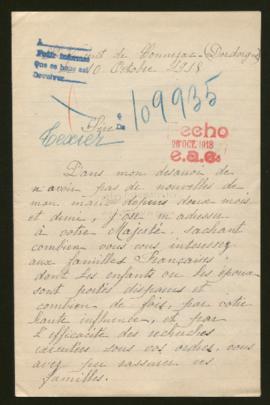 A
Pedir informes
Que se haga así
Devolver
de Tonneyac (Dordogne)
10 Octobre 1918
109935
A
De
Sire
Texier
hecho
26 OCT. 1918
e.a.e.
Dans mon désespoir de
n'avoir pas de nouvelles de
mon mari depuis deux mois
et demi, j'ose m'adresser
à votre Majesté, sachant
combien vous vous intéressez
aux familles Françaises
dont les enfants ou les époux
sont portés disparus et
combien de fois, par votre
haute influence, et par
l'efficacité des recherches
exécutées sous vos ordres, vous
avez pu rassurer ces
familles.